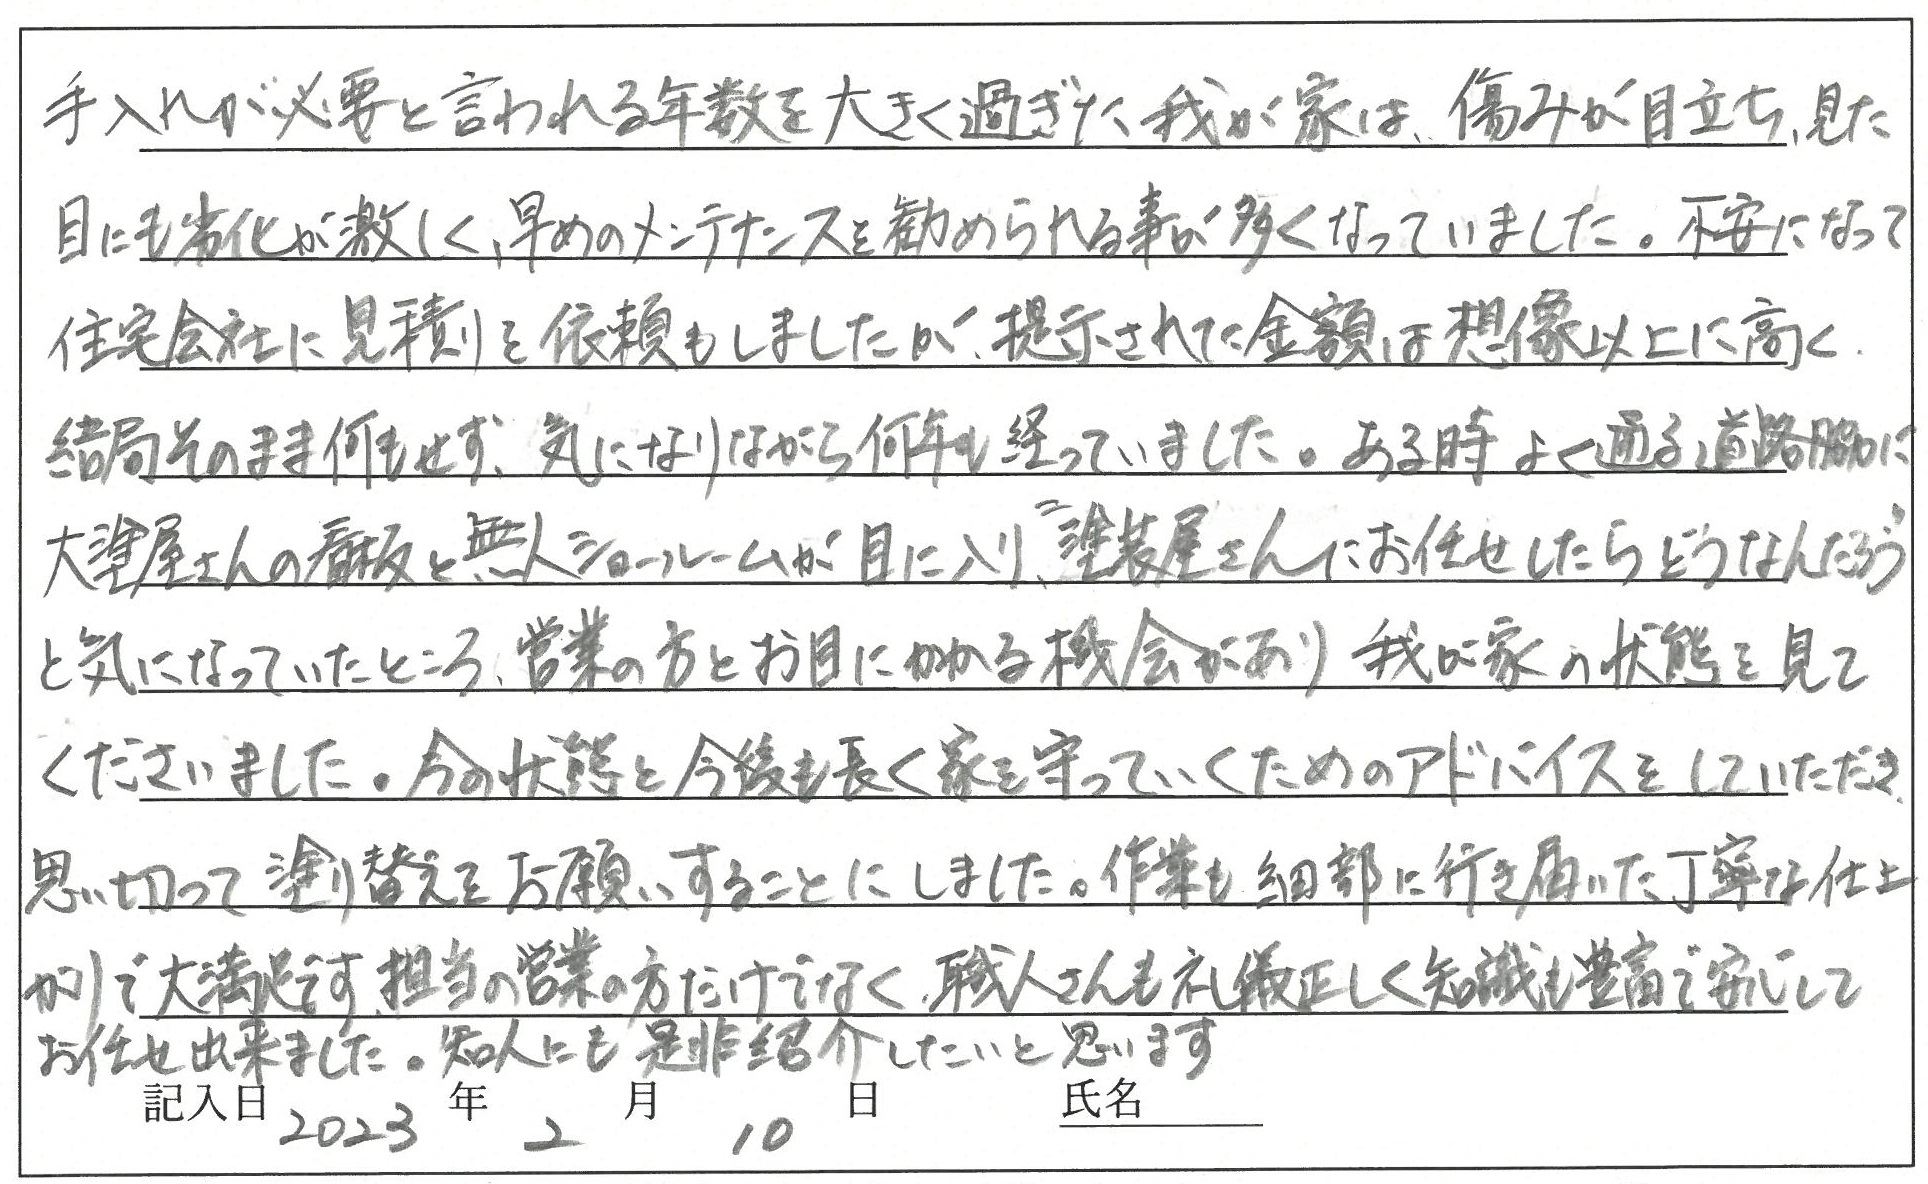 手入れが必要と言われる年数を大きく過ぎた我が家は、傷みが目立ち、見た
目にも劣化が激しく、早めのメンテナンスを勧められる事が多くなっていました。不安になって
住宅会社に見積りを依頼もしましたが、提示された金額は想像以上に高く、
結局そのまま何もせず、気になりながら何年も経っていました。ある時よく通る道路脇に
大塗屋さんの看板と無人ショールームが目に入り、“塗装屋さんにお任せしたらどうなんだろう”
と気になっていたところ、営業の方とお目にかかる機会があり 我が家の状態を見て
くださいました。今の状態と今後も長く家を守っていくためのアドバイスをしていただき、
思い切って塗り替えをお願いすることにしました。作業も細部に行き届いた丁寧な仕上
がりで大満足です。担当の営業の方だけでなく、職人さんも礼儀正しく知識も豊富で安心して
お任せ出来ました。知人にも是非紹介したいと思います
記入日 2023 年 2 月 10 日 氏名